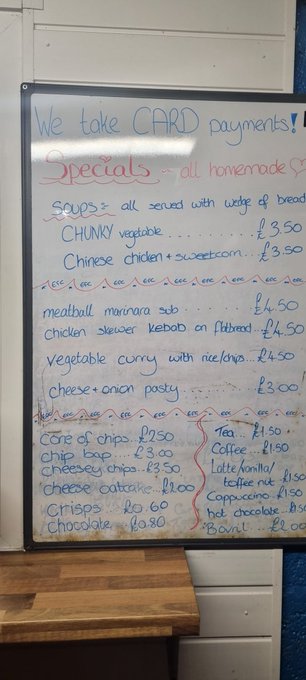 We take CARD payments!
Specials - all homemade
Soups:- all served with wedge of bread
CHUNKY vegetable ......... £3.50
Chinese chicken + sweetcorn... £3.50
EFC EFC EFC EFC EFC EFC EFC EFC
meatball marinara sub ...... £4.50
chicken skewer kebab on flatbread... £4.50
vegetable curry with rice/chips... £4.50
cheese + onion pasty £3.00
EFC EFC EFC EFC EFC EFC EFC EFC
Cone of chips... £2.50
chip bap.... £3.00
cheesey chips... £3.50
cheese oatcake... £2.00
Crisps .... £0.60
chocolate... £0.80
Tea... £1.50
Coffee... £1.50
Latte/vanilla/
toffee nut £1.50
Cappuccino. £1.50
hot chocolate... £1.50
Bovril ... £2.00